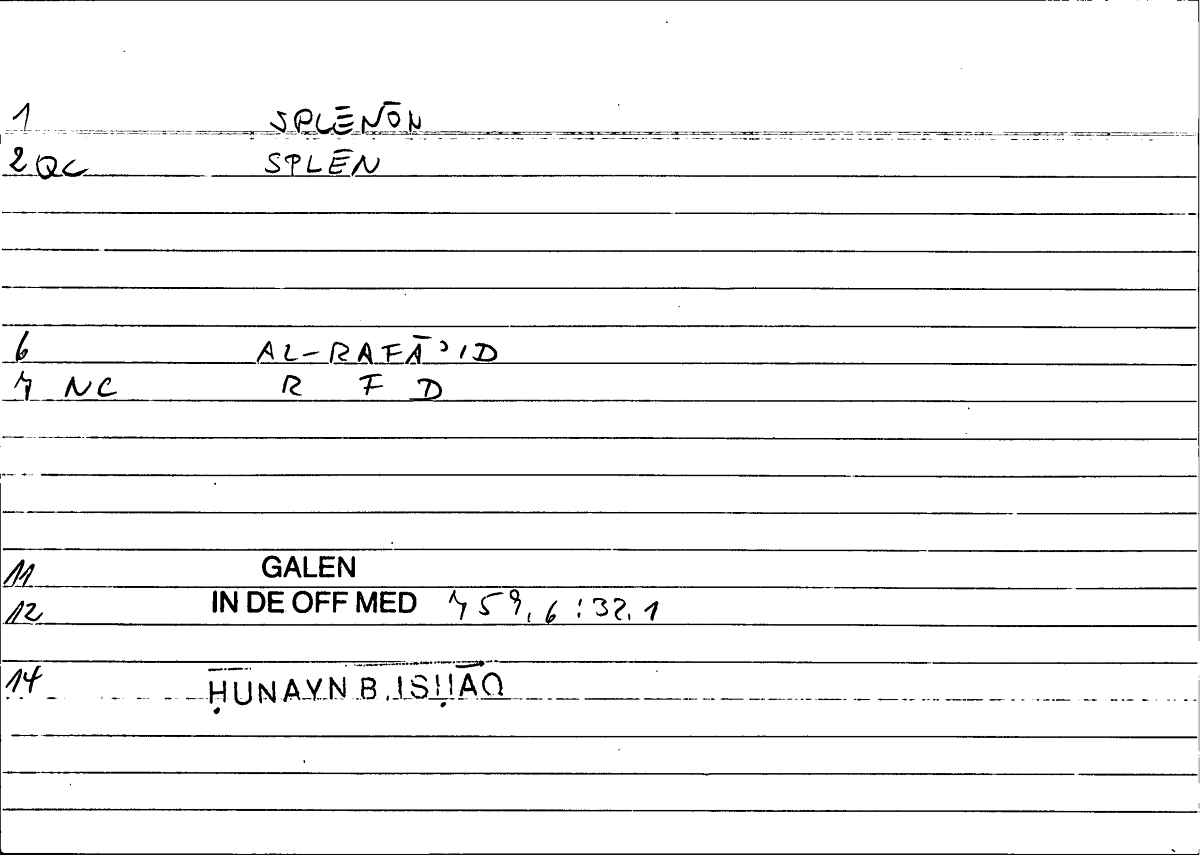 1 SPLĒNŌN
2 QC SPLĒN
6 AL-RAFĀʾID
7 NC R F D
11 GALEN
12 IN DE OFF MED 759,6:32,1
14 ḤUNAYN B. ISḤĀQ